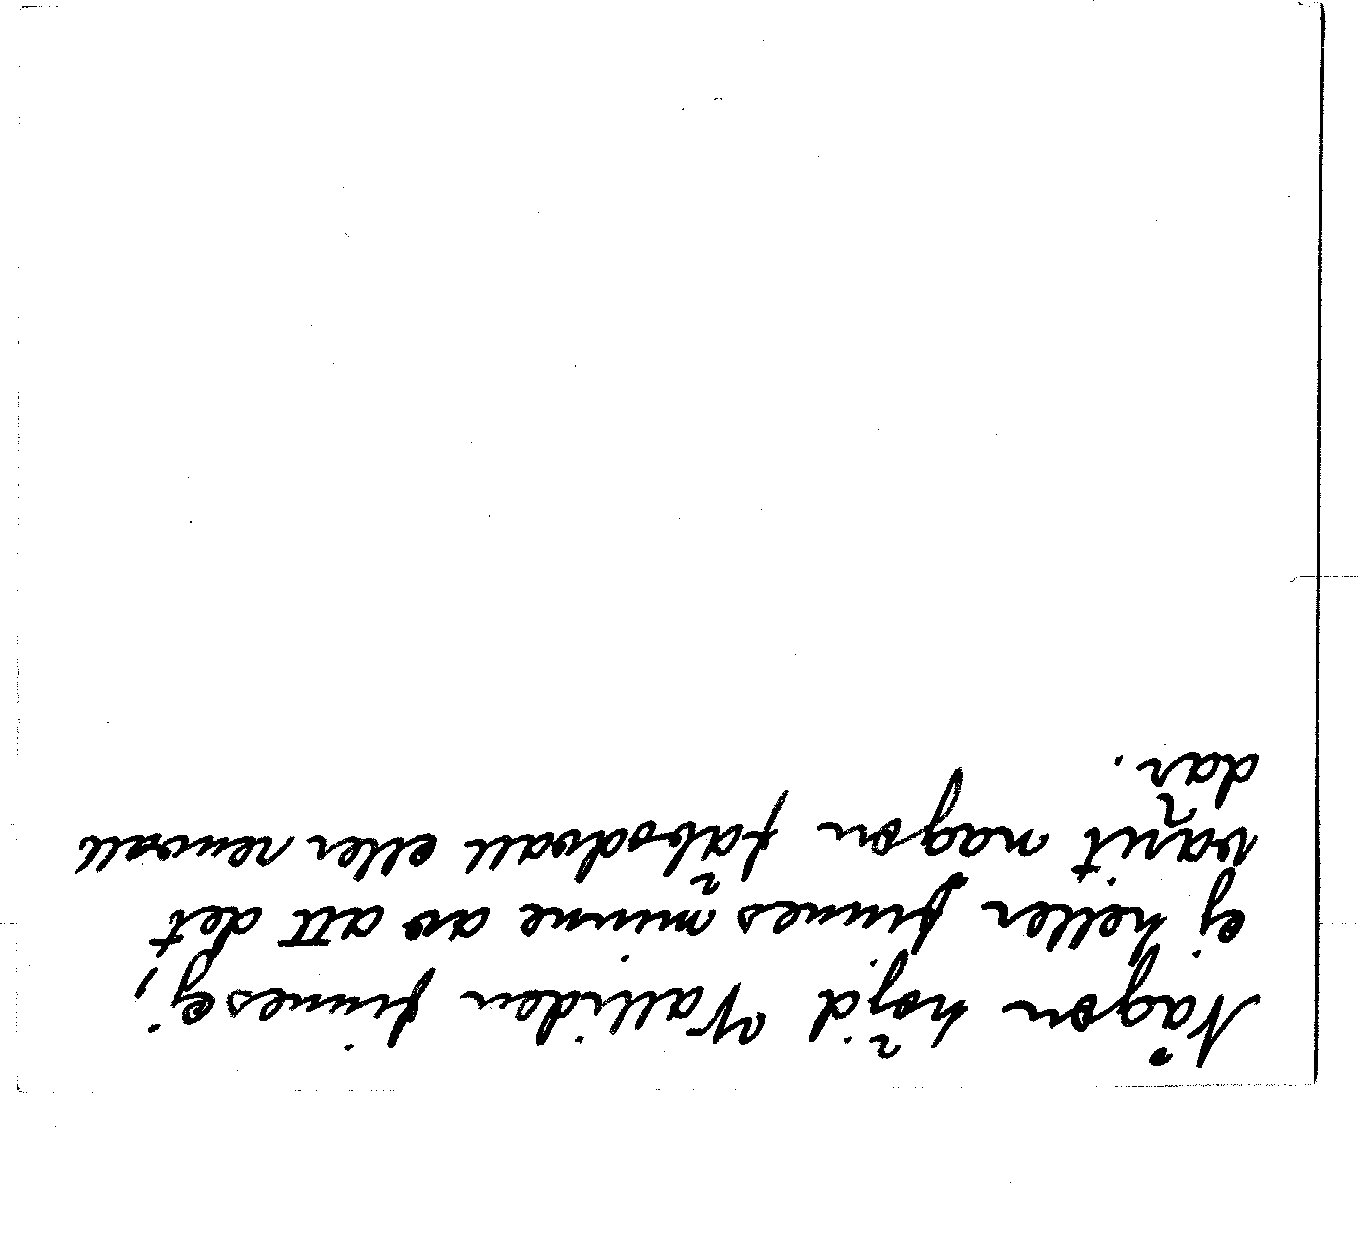 Någon höjd Valliden finnes ej,
ej heller finnes minne av att det
varit någon fäbodvall eller renvall
där.